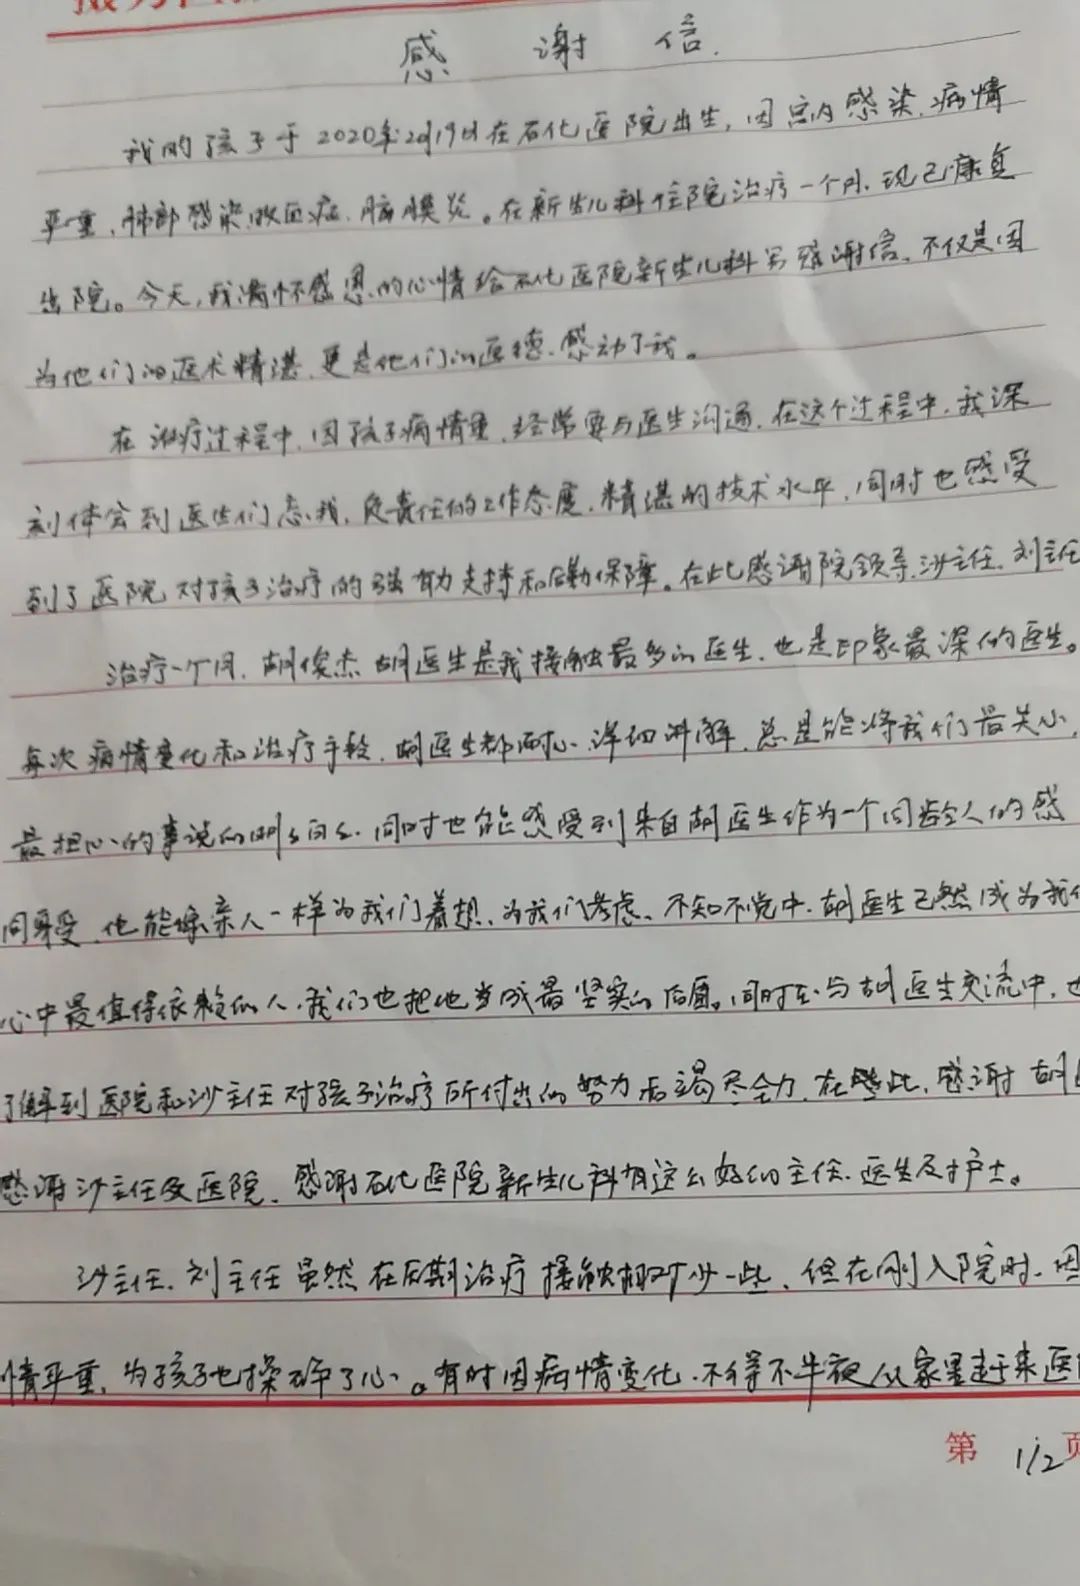 感谢信.
我的孩子于2020年2月19日在石化医院出生,因宫内感染,病情
严重,肺部感染,败血症、脑膜炎。在新生儿科住院治疗一个月、现已康复
出院。今天,我满怀感恩的心情给石化医院新生儿科写感谢信、不仅是因
为他们的医术精湛,更是他们的医德、感动了我。
在治疗过程中,因孩子病情重,经常要与医生沟通,在这个过程中,我深
刻体会到医生们忘我,负责任的工作态度,精湛的技术水平,同时也感受
到了医院对孩子治疗的强有力支持和后勤保障。在此感谢院领导,沙主任、刘主任
治疗一个月,胡俊杰 胡医生是我接触最多的医生,也是印象最深的医生。
每次病情变化和治疗手段,胡医生都耐心、详细讲解,总是能将我们最关心,
最担心的事说的明明白白、同时也能感受到来自胡医生作为一个同龄人的感
同身受,他能像亲人一样为我们着想、为我们考虑、不知不觉中,胡医生已然成为我们
心中最值得依赖的人,我们也把他当成最坚实的后盾。同时在与胡医生交流中,也
了解到医院和沙主任对孩子治疗所付出的努力和竭尽全力,在此,感谢胡医
感谢沙主任及医院,感谢石化医院新生儿科有这么好的主任、医生及护士。
沙主任、刘主任虽然在后期治疗接触相对少一些,但在刚入院时,因
情严重,为孩子也操碎了心。有时因病情变化,不得不半夜从家里赶来医
第 1/2 页